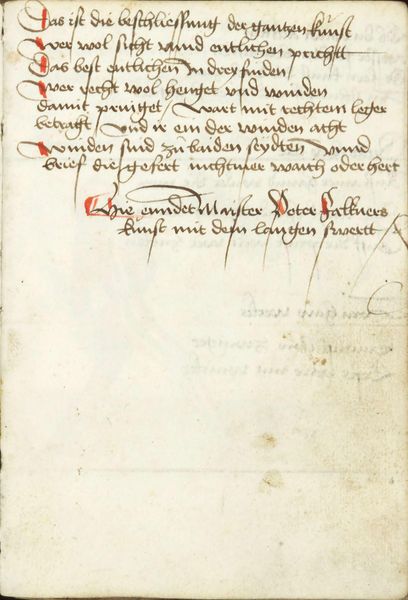 Das ist die beschliessung der gantzen kunst
Wer wol sicht vnnd entlichen pricht
Das best entlichen In drey finden
Wer recht wol henget vnd winden
damit pruffet / wart mit rechtem leger
betragt / Und ie ein der winden acht
Winden sind zu baiden seydten vnnd
brief die gefert nichtmer waich oder hert
Hie enndet Maister Peter Falkners
kunst mit dem langen swertt